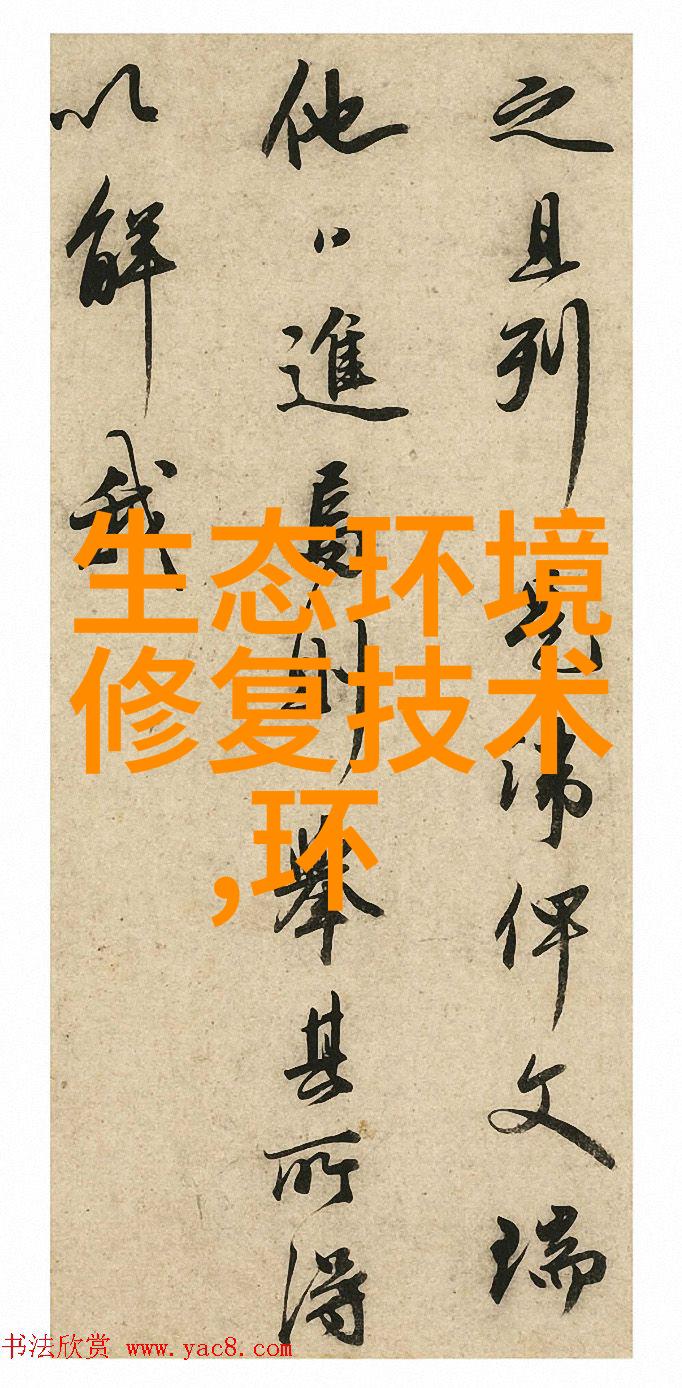 之且列俾文瑞
他進舉其所得
以解我
生态环境
修复技术
,环
书法欣赏 www.yac8.com